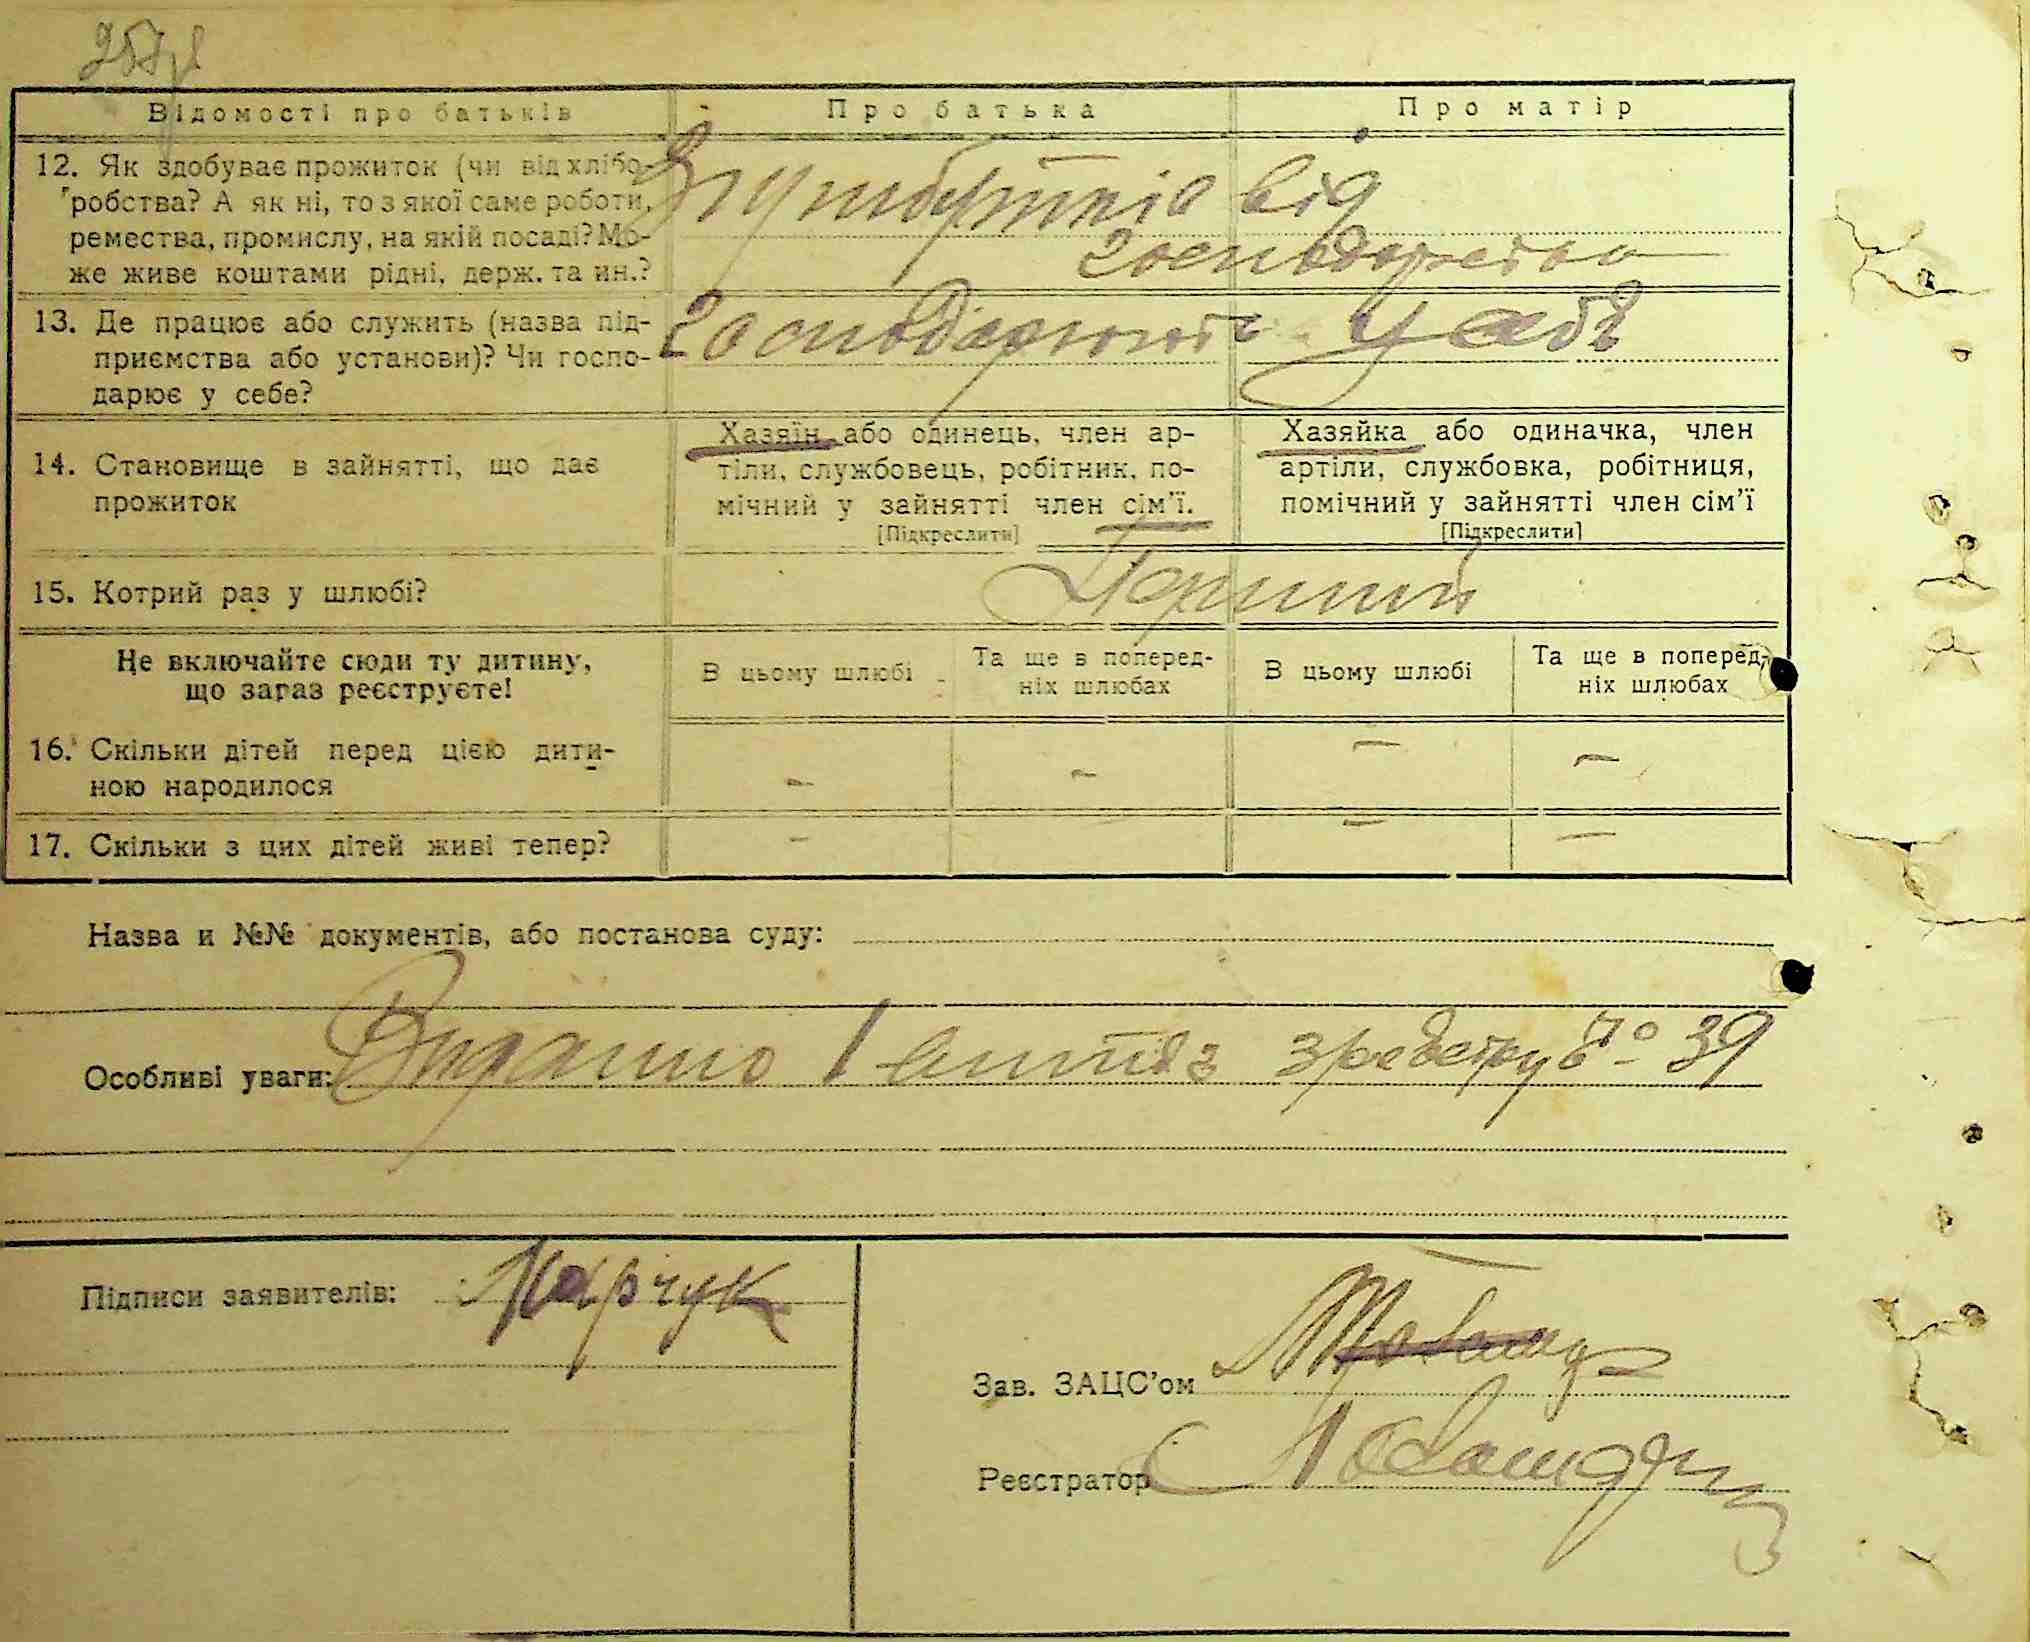 Відомості про батьків
Про батька
Про матір
12. Як здобуває прожиток (чи від хлібо-
робства? А як ні, то з якої саме роботи,
ремества, промислу, на якій посаді? Мо-
же живе коштами рідні, держ. та ин.?
З прибутків від
господарства
13. Де працює або служить (назва під-
приємства або установи)? Чи госпо-
дарює у себе?
Господарюють у себе
14. Становище в зайнятті, що дає
прожиток
Хазяїн або одинець, член ар-
тіли, службовець, робітник, по-
мічний у зайнятті член сім'ї.
[Підкреслити]
Хазяйка або одиначка, член
артіли, службовка, робітниця,
помічний у зайнятті член сім'ї
[Підкреслити]
15. Котрий раз у шлюбі?
Перший
Не включайте сюди ту дитину,
що зараз реєструєте!
В цьому шлюбі
Та ще в поперед-
ніх шлюбах
В цьому шлюбі
Та ще в поперед-
ніх шлюбах
16. Скільки дітей перед цією дити-
ною народилося
– – – –
17. Скільки з цих дітей живі тепер?
– – –
Назва и №№ документів, або постанова суду:
Особливі уваги: Видано 1 з реєстру № 39
Підписи заявителів: Марчук
Зав. ЗАЦС'ом
Реєстратор